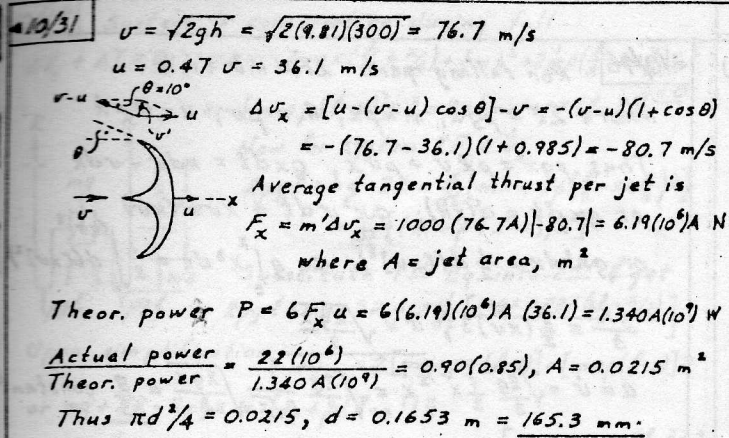 10/31
v = √2gh = √2(9.81)(300) = 76.7 m/s
u = 0.47 v = 36.1 m/s
θ = 10°
v-u
u
v'
θ
v
u
x
Δv_x = [u-(v-u) cos θ] - v = -(v-u)(1 + cos θ)
= -(76.7 - 36.1)(1 + 0.985) = - 80.7 m/s
Average tangential thrust per jet is
F_x = m'Δv_x = 1000 (76.7A)|-80.7| = 6.19(10⁶)A N
where A = jet area, m²
Theor. power P = 6 F_x u = 6(6.19)(10⁶)A (36.1) = 1.340A(10⁹) W
Actual power / Theor. power = 22(10⁶) / 1.340 A(10⁹) = 0.90(0.85), A = 0.0215 m²
Thus πd²/4 = 0.0215, d = 0.1653 m = 165.3 mm.